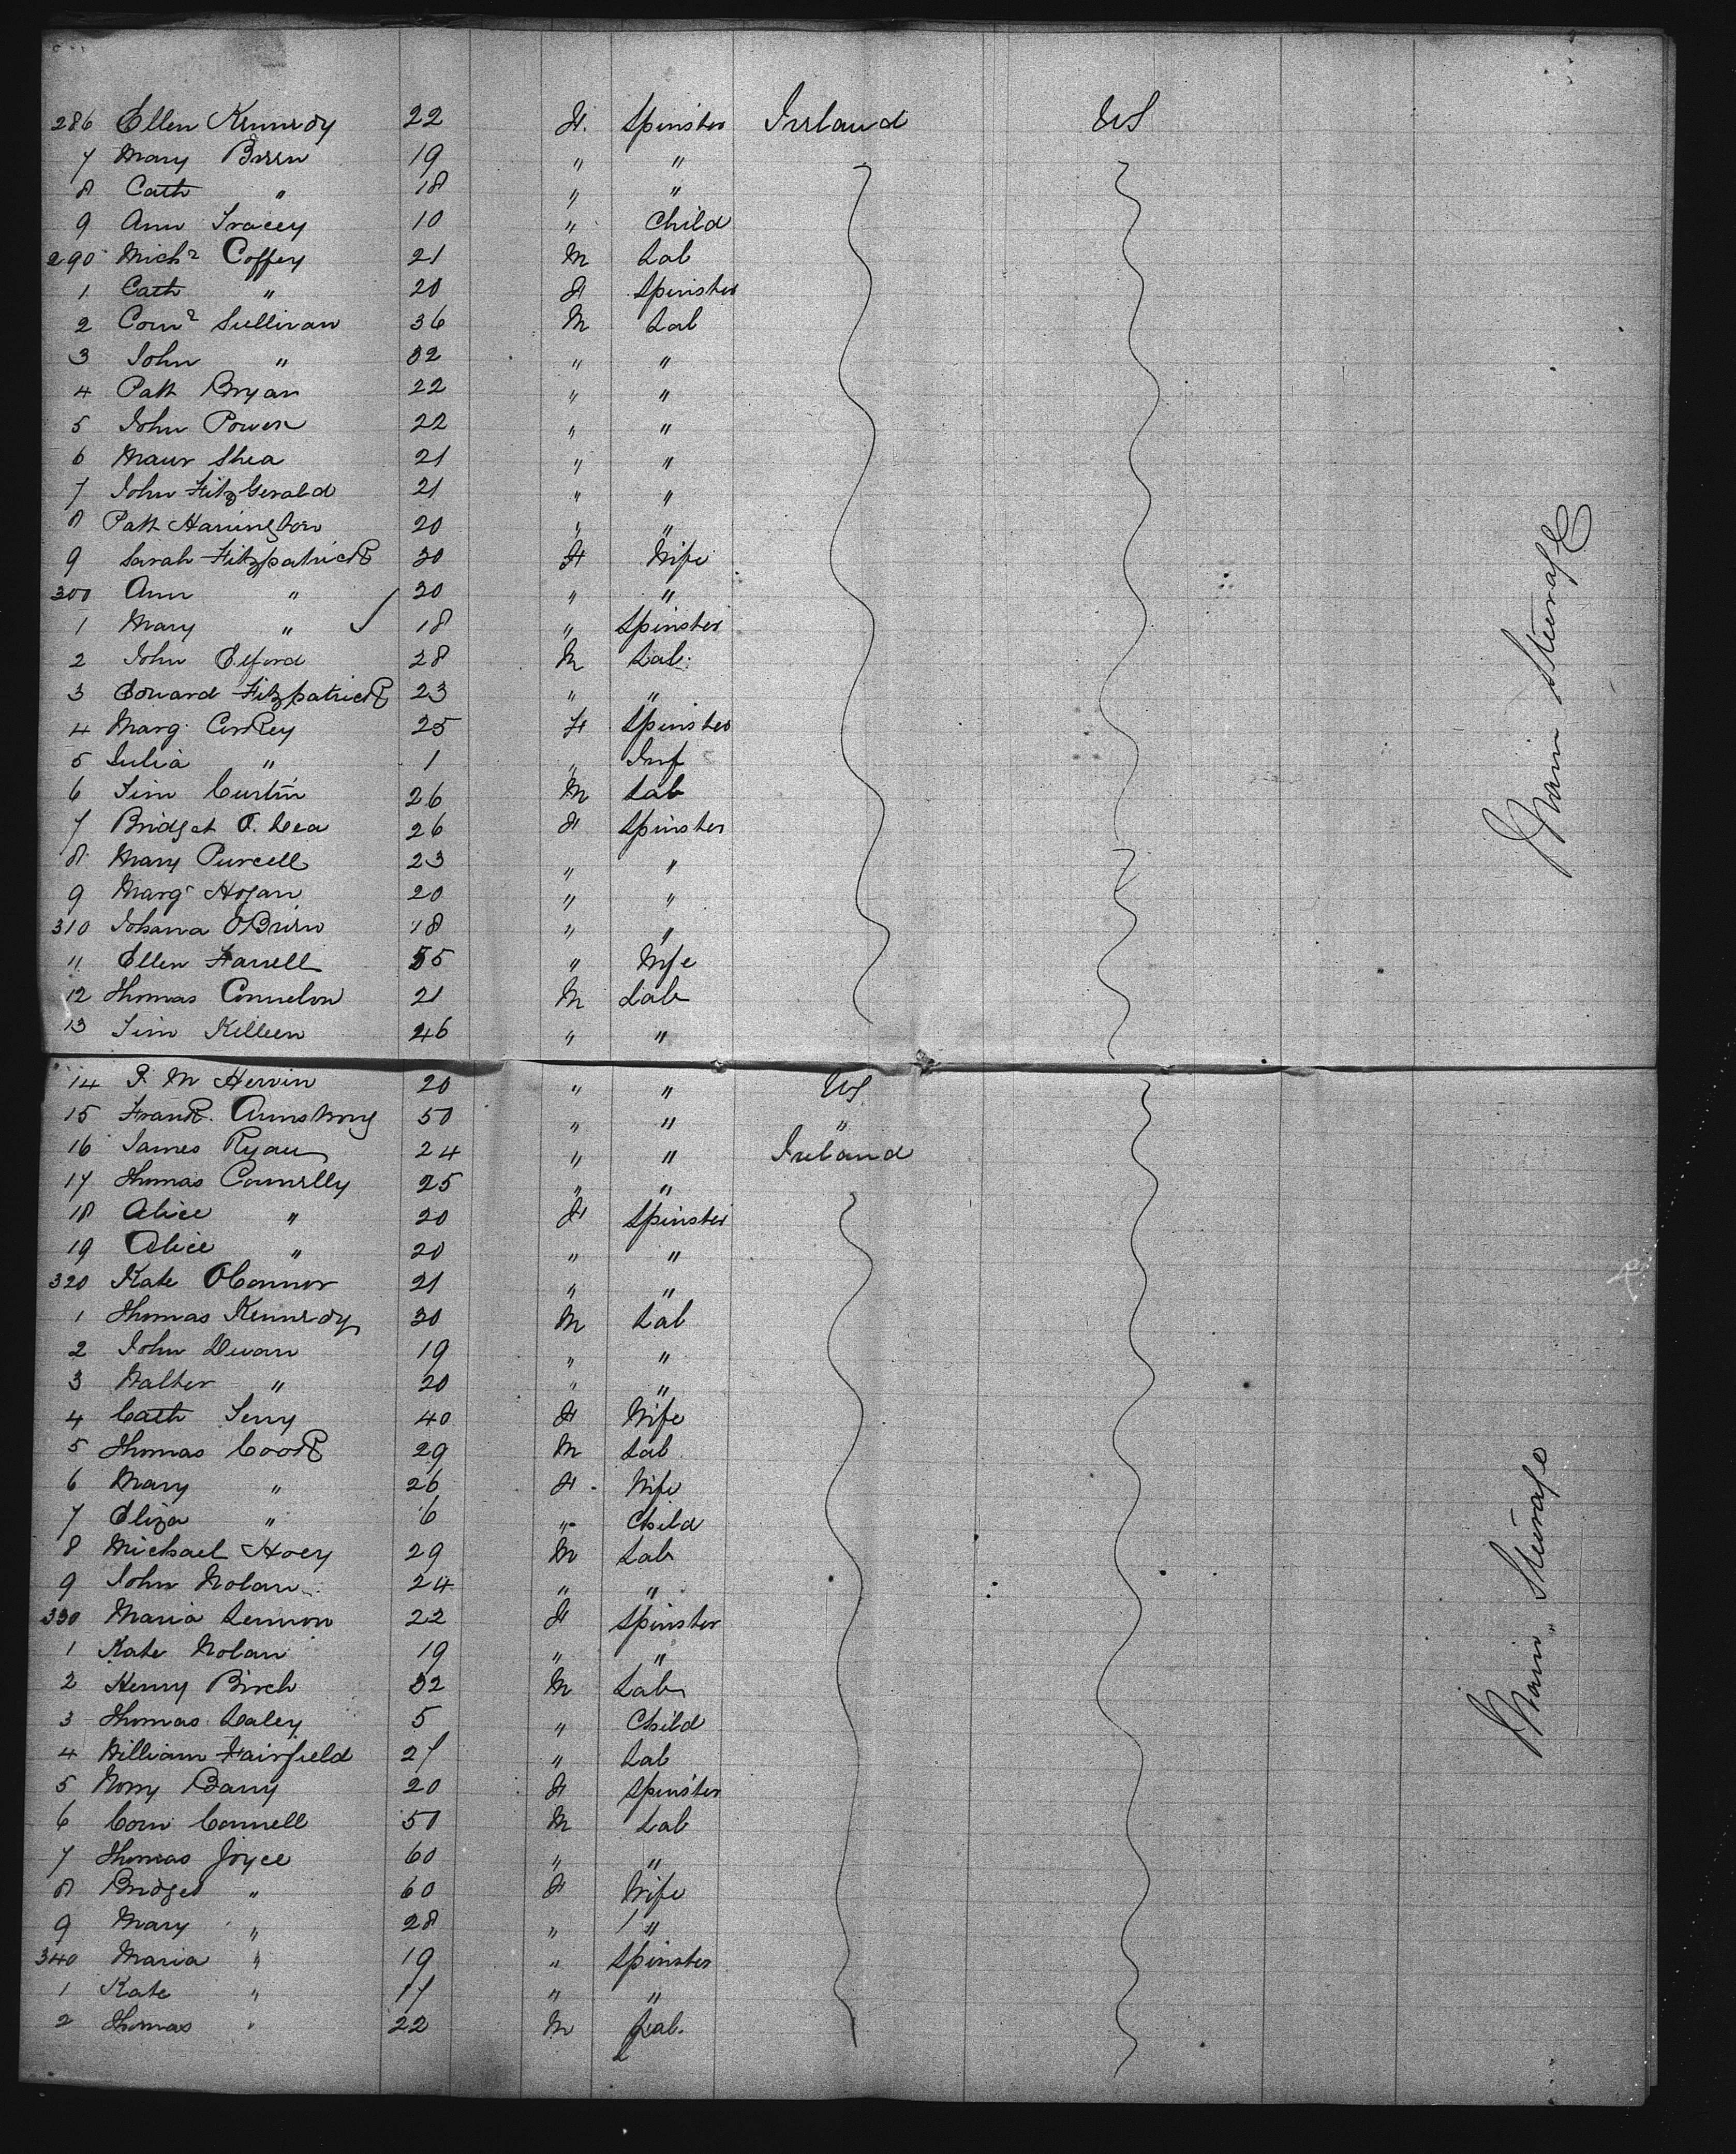 286 Ellen Kennedy 22 F. Spinster Ireland US
7 Mary Breen 19 " "
8 Cath " 18 " "
9 Ann Tracey 10 " Child
290 Michl Coffey 21 M Lab
1 Cath " 20 F Spinster
2 Cornl Sullivan 36 M Lab
3 John " 32 " "
4 Patk Bryan 22 " "
5 John Power 22 " "
6 Maur Shea 21 " "
7 John FitzGerald 21 " "
8 Patk Harrington 20 " "
9 Sarah Fitzpatrick 30 F Wife
300 Ann " 20 " "
1 Mary " 18 " Spinster
2 John Elford 28 M Lab.
3 Edward Fitzpatrick 23 " "
4 Marg. Corkey 25 F Spinster
5 Julia " 1 " Inf
6 Tim Curtin 26 M Lab
7 Bridget O. Lea 26 F Spinster
8 Mary Purcell 23 " "
9 Marg Hogan 20 " "
310 Johana OBrien 18 " "
11 Ellen Farrell 55 " Wife
12 Thomas Connelon 21 M Lab
13 Tim Killeen 46 " "
14 P. M Hervin 20 " " US
15 Frank. Armstrong 50 " " "
16 James Ryan 24 " " Ireland
17 Thomas Connelly 25 " "
18 Alice " 20 F Spinster
19 Alice " 20 " "
320 Kate OConnor 21 " "
1 Thomas Kennedy 30 M Lab
2 John Devan 19 " "
3 Walter " 20 " "
4 Cath Terry 40 F Wife
5 Thomas Cook 29 M Lab
6 Mary " 26 F Wife
7 Eliza " 6 " Child
8 Michael Hoey 29 M Lab
9 John Nolan 24 " "
330 Maria Lennon 22 F Spinster
1 Kate Nolan 19 " "
2 Henry Birch 32 M Lab
3 Thomas Daley 5 " Child
4 William Fairfield 27 " Lab
5 Norry Barry 20 F Spinster
6 Corn Connell 50 M Lab
7 Thomas Joyce 60 " "
8 Bridget " 60 F Wife
9 Mary " 28 " "
340 Maria " 19 " Spinster
1 Kate " 17 " "
2 Thomas " 22 M Lab.
Main Steerage
Main Steerage